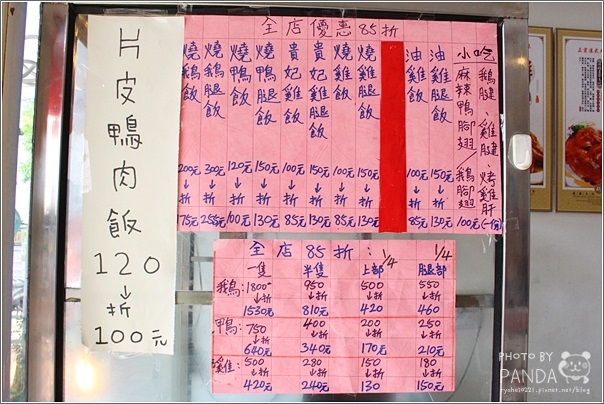 片皮鴨肉飯
120
↓
折
100元
全店優惠85折
燒鵝飯 200元 ↓ 折 175元
燒鵝腿飯 300元 ↓ 折 255元
燒鴨飯 120元 ↓ 折 100元
燒鴨腿飯 150元 ↓ 折 130元
貴妃雞飯 100元 ↓ 折 85元
貴妃雞腿飯 150元 ↓ 折 130元
燒雞飯 100元 ↓ 折 85元
燒雞腿飯 150元 ↓ 折 130元
油雞飯 100元 ↓ 折 85元
油雞腿飯 150元 ↓ 折 130元
小吃
鵝腱、雞腱、烤雞肝
麻辣鴨腳翅/鵝腳翅
100元(一份)
全店85折:
一隻 半隻 1/4上部 1/4腿部
鵝: 1800 950 500 550
↓折 ↓折 ↓折 ↓折
1530元 810元 420 460
鴨: 750 400 200 250
↓折 ↓折 ↓折 ↓折
640元 340元 170元 210元
雞: 500 280 150 180
↓折 ↓折 ↓折 ↓折
420元 240元 130 150元
PHOTO BY
PANDA